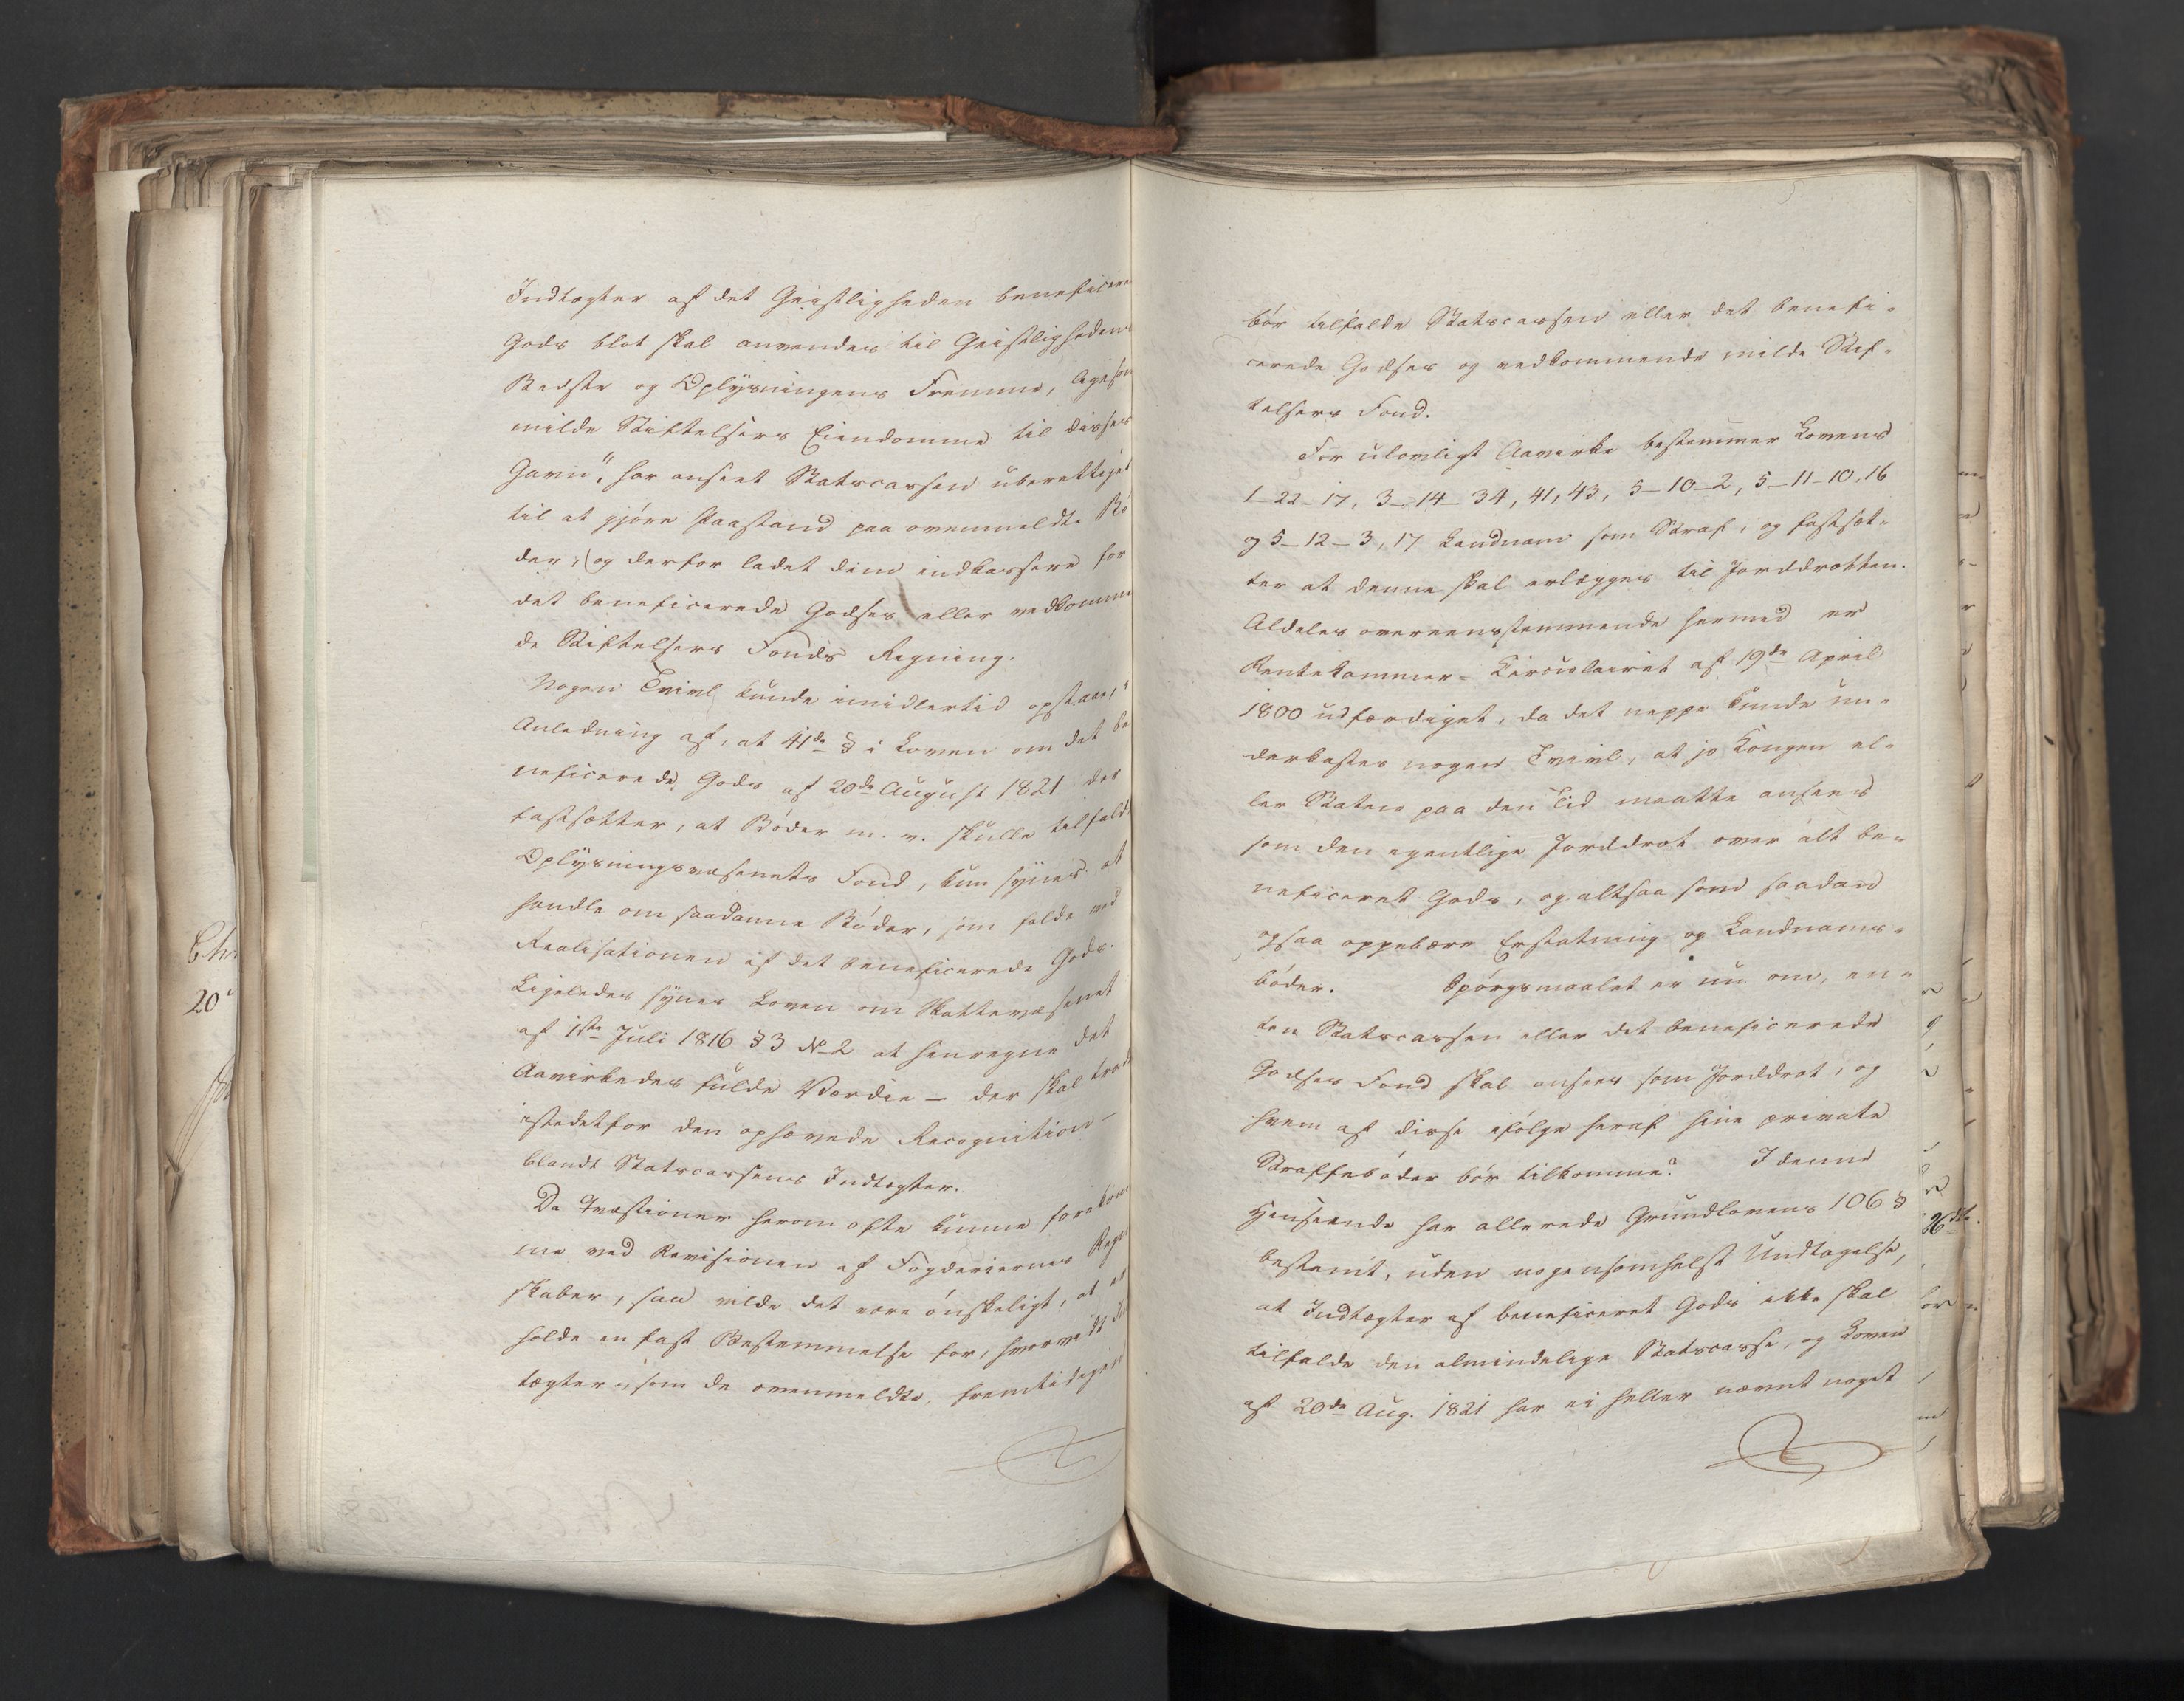 Indtægter af det Geistligheden beneficere
Gods blot skal anvendes til Geistlighedens
Bedste og Oplysningens Fremme, ligesom
milde Stiftelsers Eiendomme til disses
Gavn", har anseet Statscassen uberettiget
til at gjøre Paastand paa ovenmeldte Bö
der, (og derfor ladet dem indkassere for
det beneficerede Godses eller vedkomme
de Stiftelsers Fonds Regning.
Nogen Tvivl kunde imidlertid opstaae, i
Anledning af, at 41de § i Loven om det be
neficerede Gods af 20de August 1821 der
fastsætter, at Böder m. v. skulle tilfalde
Oplysningsvæsenets Fond, kun synes at
handle om saadanne Böder, som falde ved
Realisationen af det beneficerede Gods.
Ligeledes synes Loven om Skattevæsenet
af 1ste Juli 1816 § 3 No 2 at henregne det
Aavirkedes fulde Værdie – der skal træde
istedetfor den ophævede Recognition –
blandt Statscassens Indtægter.
Da Qvæstioner herom ofte kunne forekom
me ved Revisionen af Fogderiernes Regn
skaber, saa vilde det være önskeligt, at er
holde en fast Bestemmelse for, hvorvidt Ind
tægter, som de ovenmeldte, fremtidigen
bör tilfalde Statscassen eller det benefi-
cerede Godses og vedkommende milde Stif-
telsers Fond.
For ulovligt Aavirke bestemmer Lovens
1–22–17, 3–14–34, 41, 43, 5–10–2, 5–11–10, 16
og 5–12–3, 17 Landnam som Straf, og fastsæt-
ter at denne skal erlægges til Jorddrotten.
Aldeles overeensstemmende hermed er
Rentekammer-Circulairet af 19de April
1800 udfærdiget, da det neppe kunde un-
derkastes nogen Tvivl, at jo Kongen el-
ler Staten paa den Tid maatte ansees
som den egentlige Jorddrot over alt be-
neficeret Gods, og altsaa som saadan
ogsaa oppebære Erstatning og Landnams-
böder. Spörgsmaalet er nu om, en-
ten Statscassen eller det beneficerede
Godses Fond skal ansees som Jorddrot, og
hvem af disse ifölge heraf hine private
Straffeböder bör tilkomme? I denne
Henseende har allerede Grundlovens 106 §
bestemt, uden nogensomhelst Undtagelse,
at Indtægter af beneficeret Gods ikke skal
tilfalde den almindelige Statscasse, og Loven
af 20de Aug. 1821 har ei heller nævnt noget